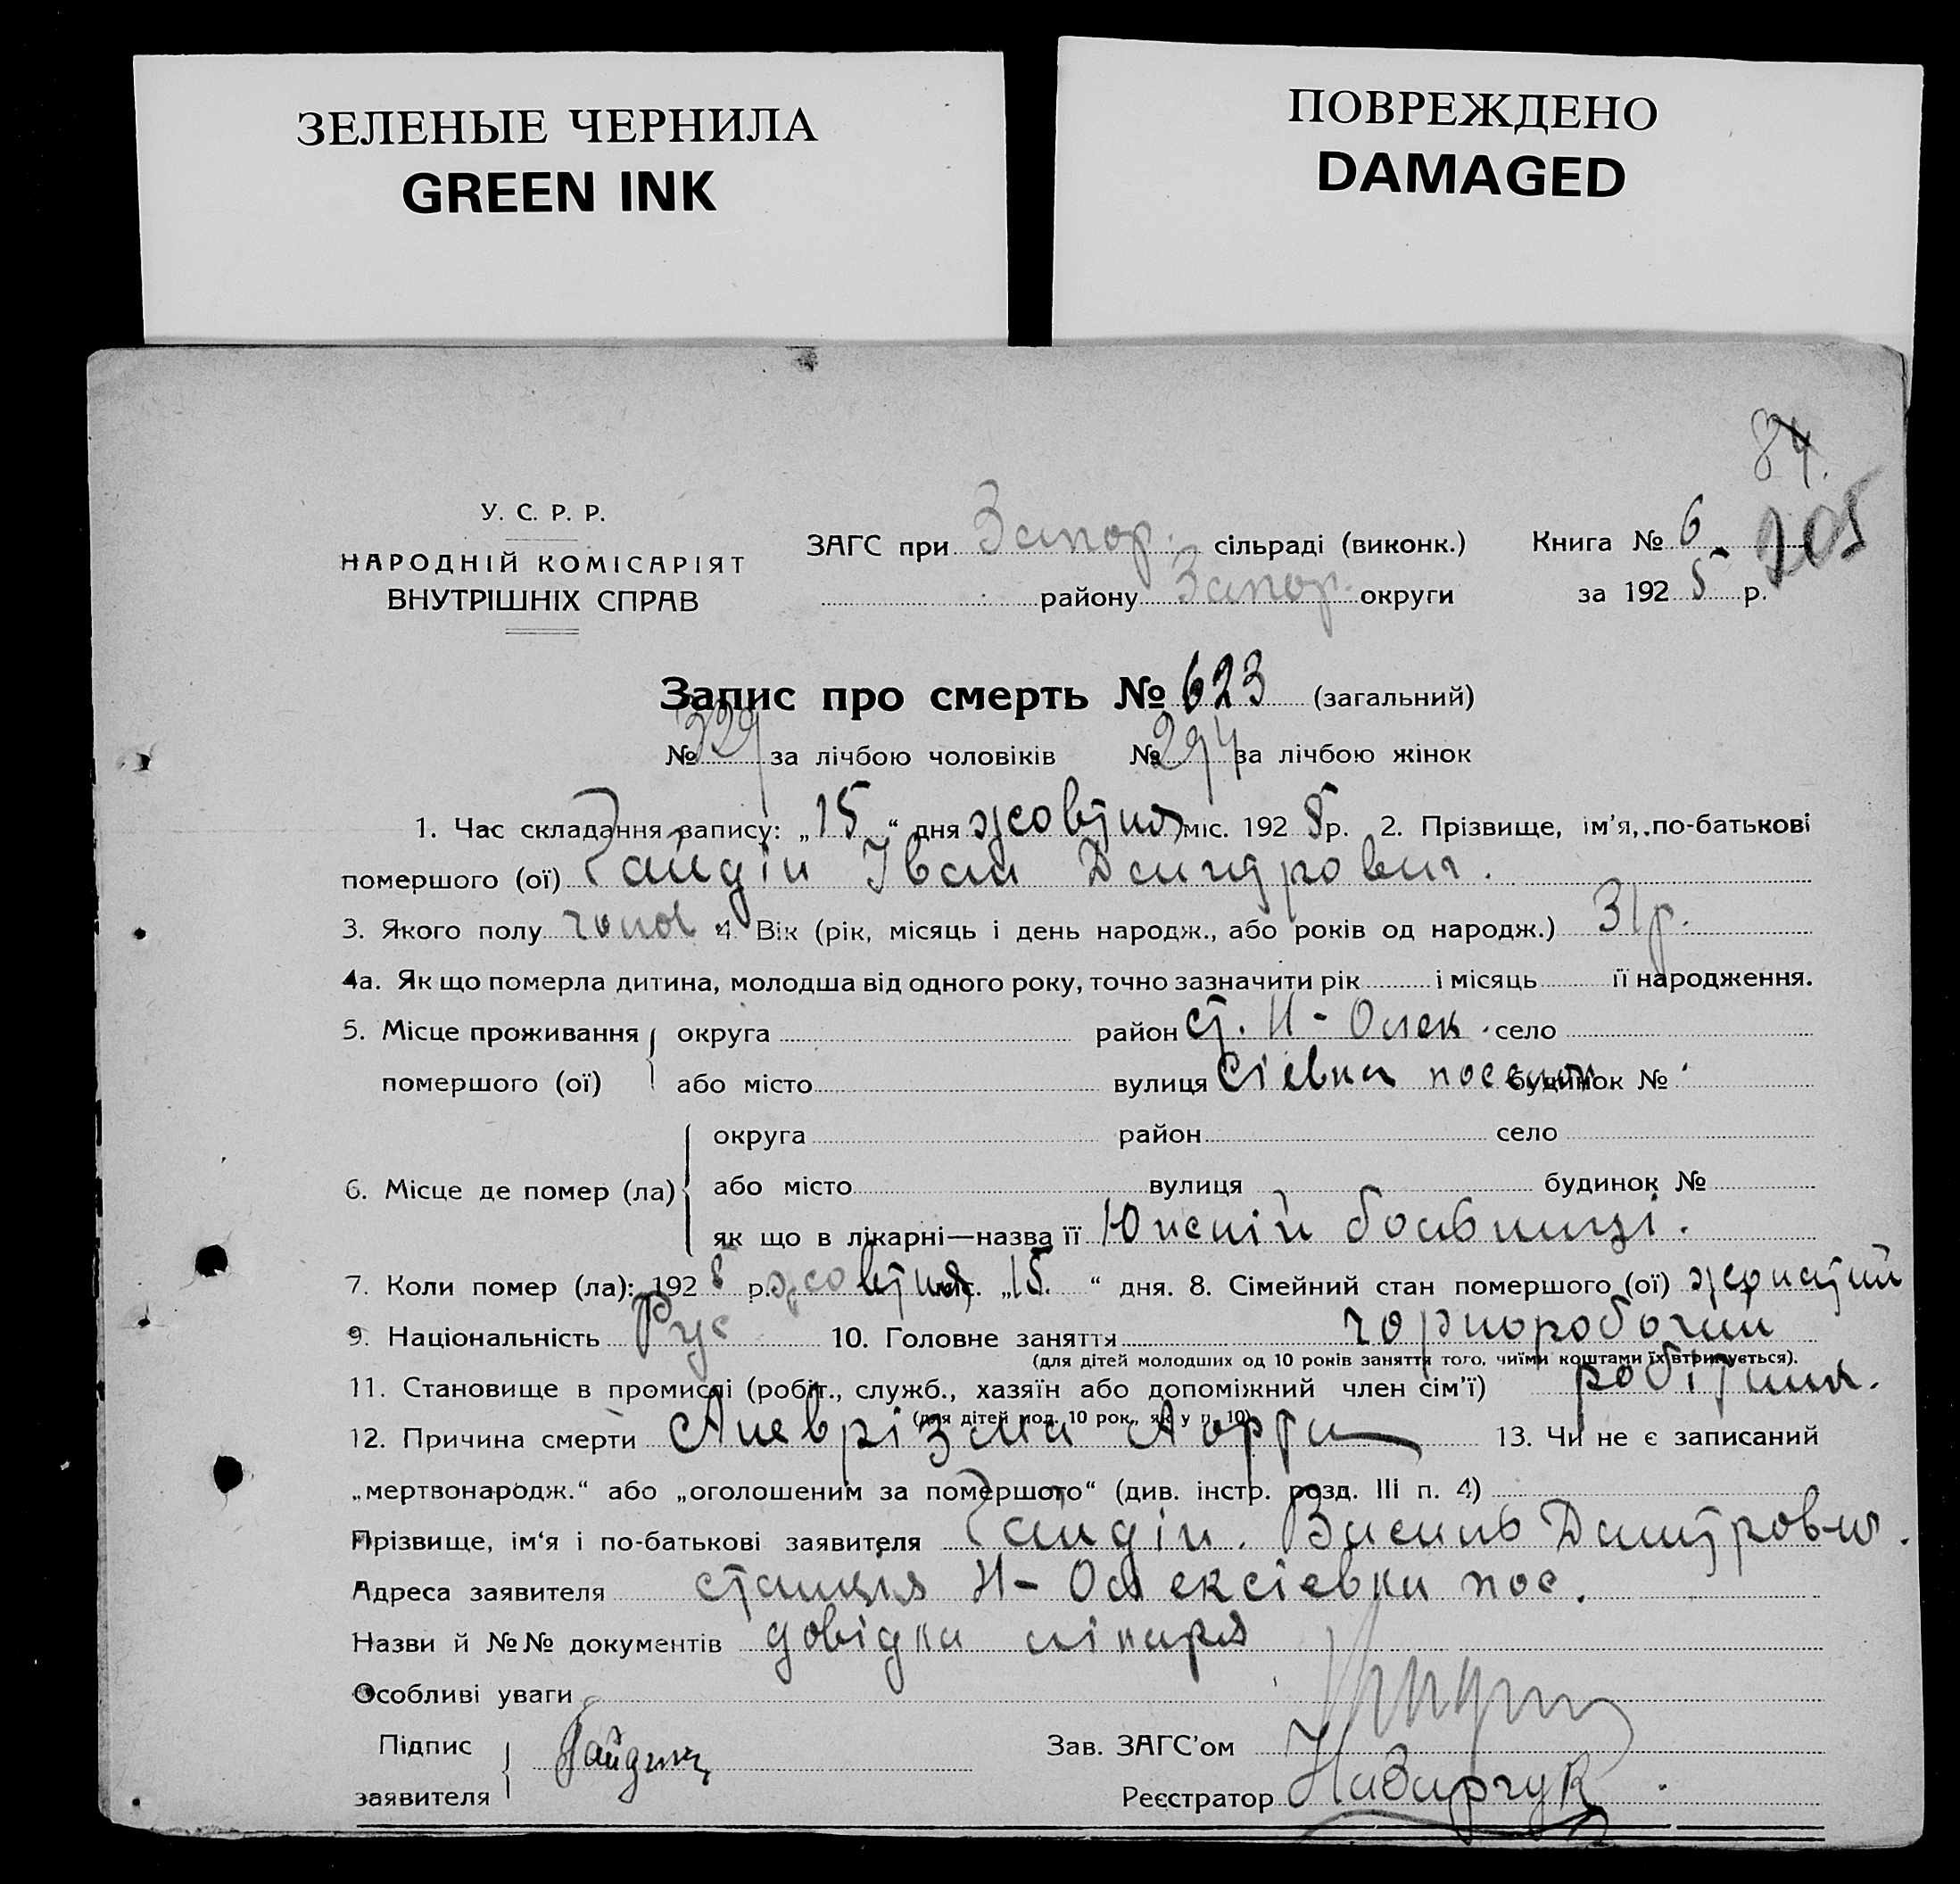 ЗЕЛЕНЫЕ ЧЕРНИЛА
GREEN INK
ПОВРЕЖДЕНО
DAMAGED
84.
205
У. С. Р. Р.
НАРОДНІЙ КОМІСАРІЯТ
ВНУТРІШНІХ СПРАВ
ЗАГС при Запор. сільраді (виконк.) Книга № 6
району Запор. округи за 192 8 р.
Запис про смерть № 623 (загальний)
№ 329 за лічбою чоловіків № 294 за лічбою жінок
1. Час складання запису: „15“ дня жовтня міс. 192 8 р. 2. Прізвище, ім'я, по-батькові
помершого (ої) Гайдін Іван Дмитрович.
3. Якого полу чолов. 4 Вік (рік, місяць і день народж., або років од народж.) 31 р.
4а. Як що померла дитина, молодша від одного року, точно зазначити рік і місяць її народження.
5. Місце проживання округа район ст. Н-Олек село
помершого (ої) або місто вулиця сієвка посьолок будинок №
округа район село
6. Місце де помер (ла) або місто вулиця будинок №
як що в лікарні—назва її Южній больниці.
7. Коли помер (ла): 192 8 р. жовтня міс. „15. “ дня. 8. Сімейний стан помершого (ої) жонатий
9. Національність Рус 10. Головне заняття чорноробочий
(для дітей молодших од 10 років заняття того, чиїми коштами їх втримується).
11. Становище в промислі (робіт., служб., хазяїн або допоміжний член сім'ї) робітник.
(для дітей мол. 10 рок., як у п. 10)
12. Причина смерти Аневрізма Аорти 13. Чи не є записаний
„мертвонародж.“ або „оголошеним за помершого“ (див. інстр. розд. III п. 4)
Прізвище, ім'я і по-батькові заявителя Гайдін. Василь Дмитрович.
Адреса заявителя станція Н-Олексієвка пос.
Назви й №№ документів довідка лікаря
Особливі уваги
Підпис
заявителя Гайдин
Зав. ЗАГС'ом
Реєстратор Назарчук